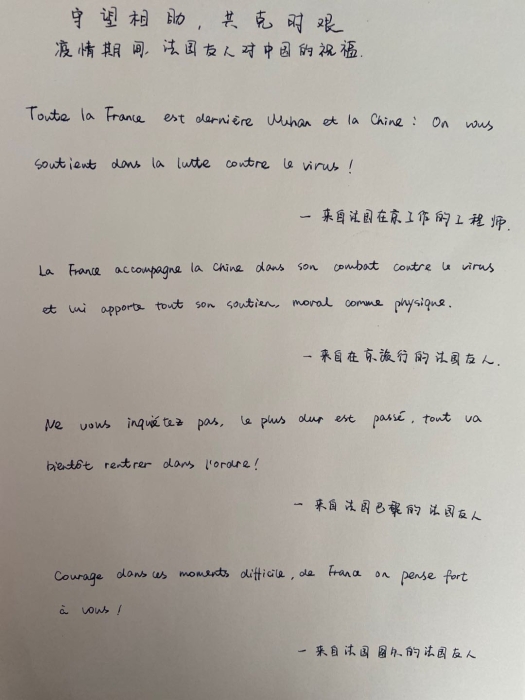 守望相助，共克时艰
疫情期间，法国友人对中国的祝福.
Toute la France est dernière Wuhan et la Chine : On vous
soutient dans la lutte contre le virus !
— 来自法国在京工作的工程师.
La France accompagne la Chine dans son combat contre le virus
et lui apporte tout son soutien, moral comme physique.
— 来自在京旅行的法国友人.
Ne vous inquiétez pas, le plus dur est passé, tout va
bientôt rentrer dans l'ordre !
— 来自法国巴黎的法国友人
Courage dans ces moments difficile, de France on pense fort
à vous !
— 来自法国 的法国友人